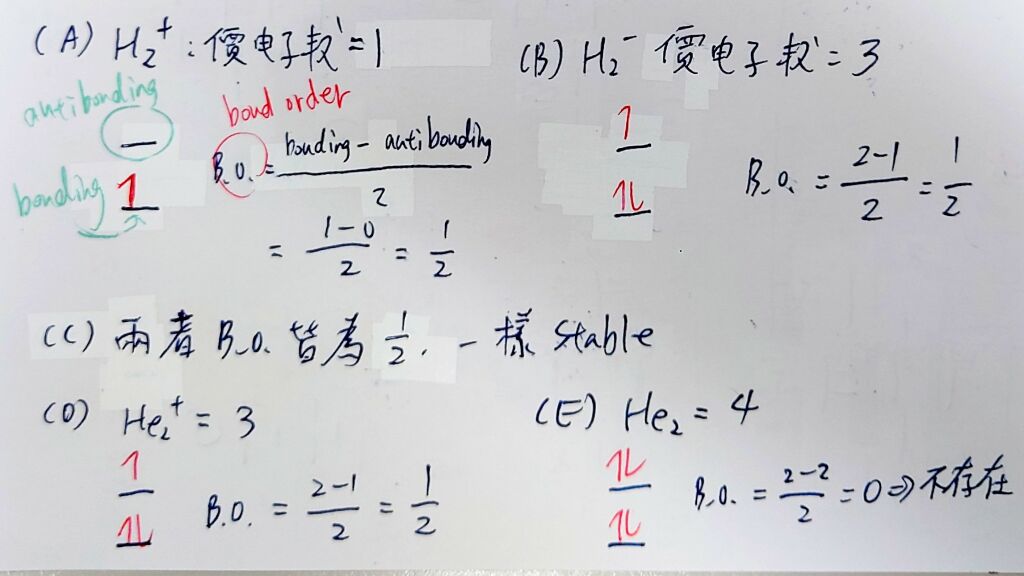 (A) H₂⁺ : 價电子软 = 1
antibonding
bond order
B.O. = bonding - antibonding / 2
bonding 1
= 1-0 / 2 = 1/2
(B) H₂⁻ 價电子软 = 3
1
1L
B.O. = 2-1 / 2 = 1/2
(C) 兩者 B.O. 皆為 1/2. 一樣 stable
(D) He₂⁺ = 3
1
1L
B.O. = 2-1 / 2 = 1/2
(E) He₂ = 4
1L
1L
B.O. = 2-2 / 2 = 0 ⇒ 不存在